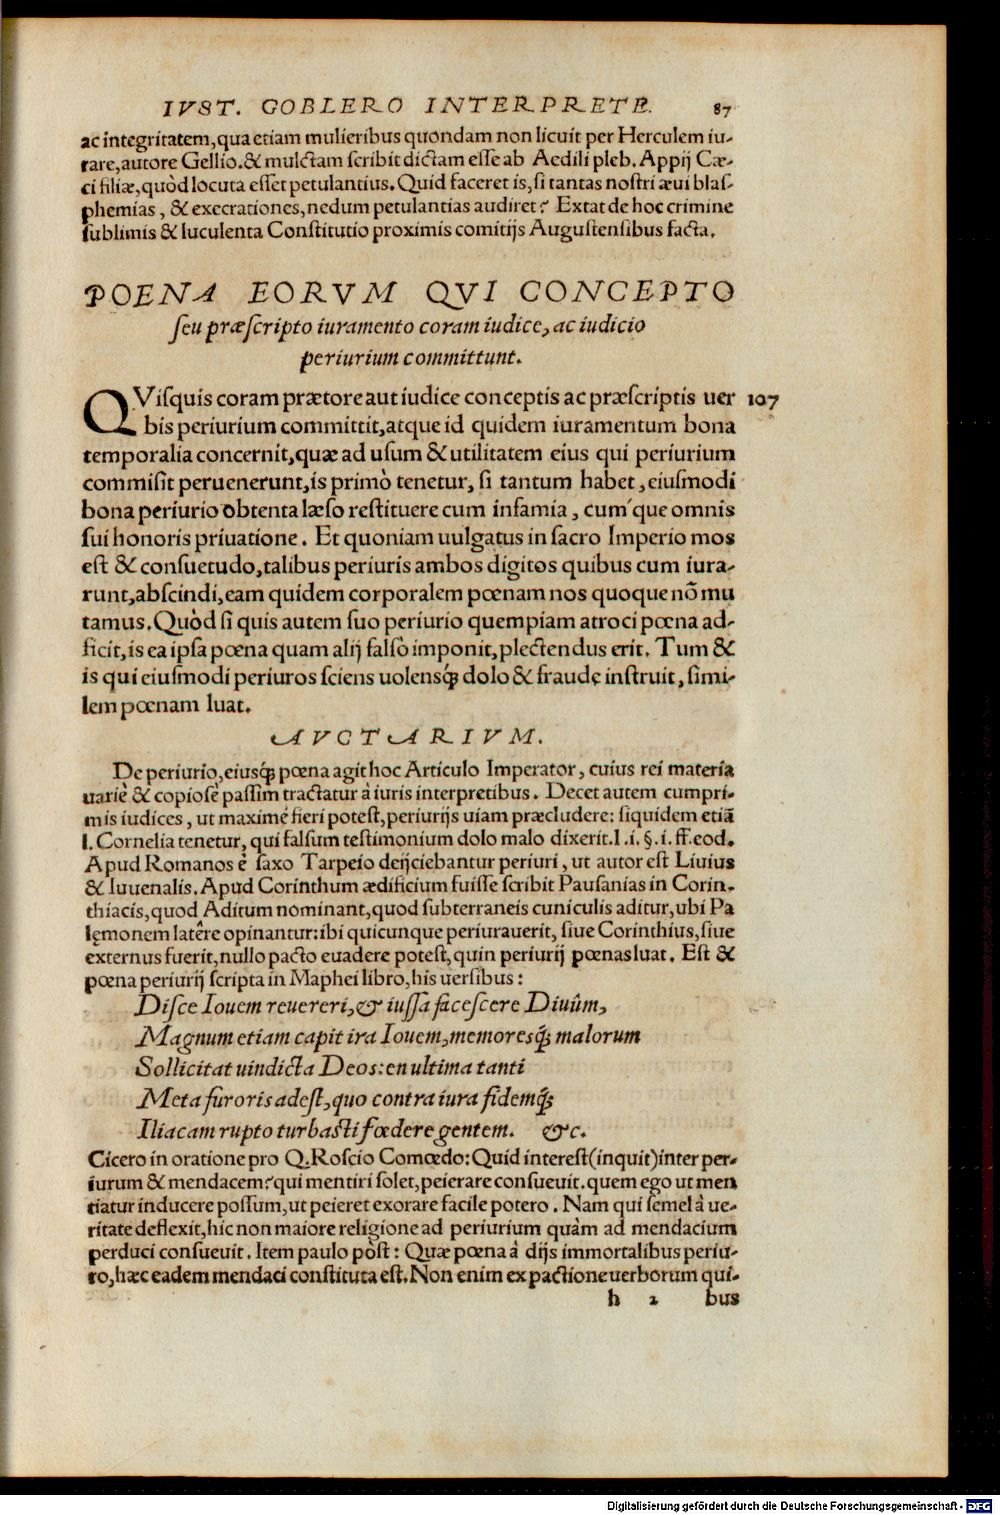 IVST. GOBLERO INTERPRETE. 87
ac integritatem, qua etiam mulieribus quondam non licuit per Herculem iu-
rare, autore Gellio. & mulctam scribit dictam esse ab Aedili pleb. Appij Cæ-
ci filiæ, quòd locuta esset petulantius. Quid faceret is, si tantas nostri æui blas-
phemias, & execrationes, nedum petulantias audiret? Extat de hoc crimine
sublimis & luculenta Constitutio proximis comitijs Augustensibus facta.
POENA EORVM QVI CONCEPTO
seu præscripto iuramento coram iudice, ac iudicio
periurium committunt.
QVisquis coram prætore aut iudice conceptis ac præscriptis uer 107
bis periurium committit, atque id quidem iuramentum bona
temporalia concernit, quæ ad usum & utilitatem eius qui periurium
commisit peruenerunt, is primò tenetur, si tantum habet, eiusmodi
bona periurio obtenta læso restituere cum infamia, cum´que omnis
sui honoris priuatione. Et quoniam uulgatus in sacro Imperio mos
est & consuetudo, talibus periuris ambos digitos quibus cum iura-
runt, abscindi, eam quidem corporalem pœnam nos quoque nõ mu
tamus. Quòd si quis autem suo periurio quempiam atroci pœna ad-
ficit, is ea ipsa pœna quam alij falsò imponit, plectendus erit. Tum &
is qui eiusmodi periuros sciens uolensq́; dolo & fraude instruit, simi-
lem pœnam luat.
AVCTARIVM.
De periurio, eiusq́; pœna agit hoc Articulo Imperator, cuius rei materia
uariè & copiosè passim tractatur à iuris interpretibus. Decet autem cumpri-
mis iudices, ut maximè fieri potest, periurijs uiam præcludere: siquidem etiã
l. Cornelia tenetur, qui falsum testimonium dolo malo dixerit. l. i. §. i. ff. eod.
Apud Romanos è saxo Tarpeio deijciebantur periuri, ut autor est Liuius
& Iuuenalis. Apud Corinthum ædificium fuisse scribit Pausanias in Corin-
thiacis, quod Aditum nominant, quod subterraneis cuniculis aditur, ubi Pa
lęmonem latêre opinantur: ibi quicunque periurauerit, siue Corinthius, siue
externus fuerit, nullo pacto euadere potest, quin periurij pœnas luat. Est &
pœna periurij scripta in Maphei libro, his uersibus:
Disce Iouem reuereri, & iussa facescere Diuûm,
Magnum etiam capit ira Iouem, memoresq́; malorum
Sollicitat uindicta Deos: en ultima tanti
Meta furoris adest, quo contra iura fidemq́;
Iliacam rupto turbasti fœdere gentem. &c.
Cicero in oratione pro Q. Roscio Comœdo: Quid interest (inquit) inter per-
iurum & mendacem? qui mentiri solet, peierare consueuit. quem ego ut men
tiatur inducere possum, ut peieret exorare facile potero. Nam qui semel à ue-
ritate deflexit, hic non maiore religione ad periurium quàm ad mendacium
perduci consueuit. Item paulo pòst: Quæ pœna à dijs immortalibus periu-
ro, hæc eadem mendaci constituta est. Non enim ex pactione uerborum qui-
h 2 bus
Digitalisierung gefördert durch die Deutsche Forschungsgemeinschaft - DFG